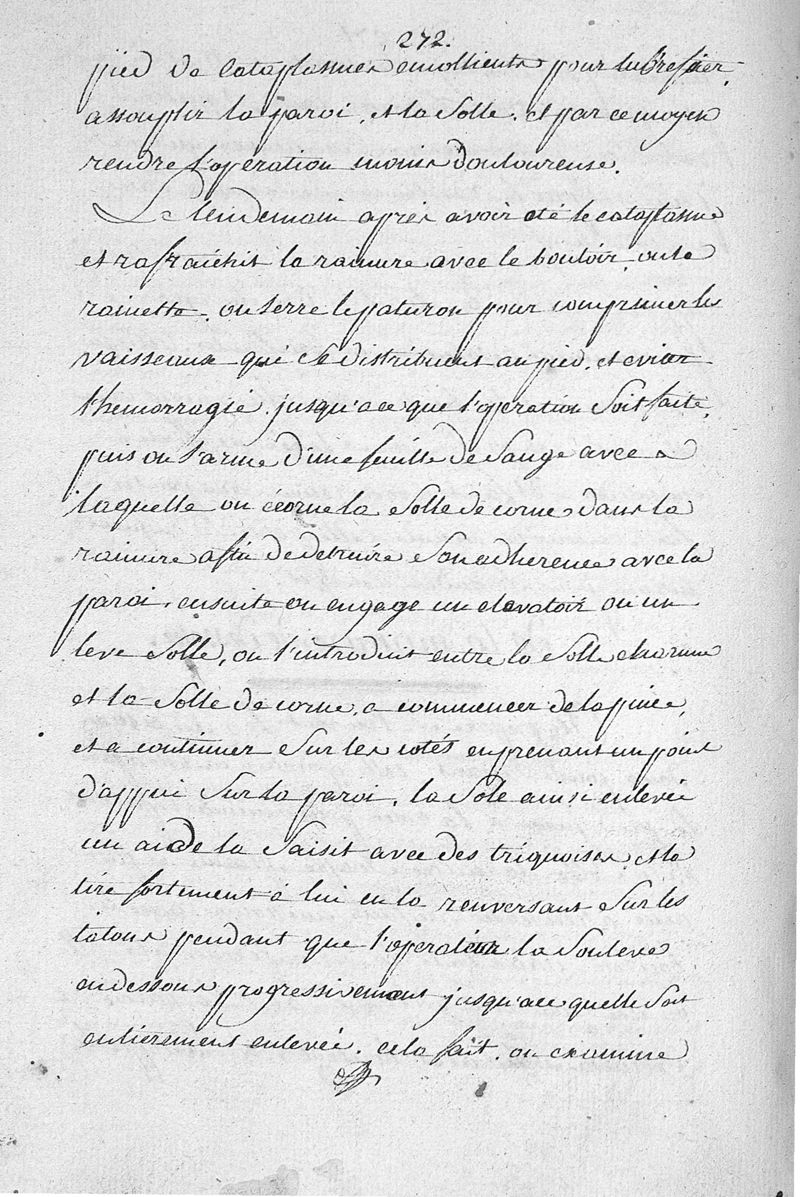 272.
pied de cataplasmes emollients pour
assouplir la paroi, et la Solle, et par ce moyen
rendre l'operation moins douloureuse.
Le lendemain après avoir oté le cataplasme
et rafraichit la rainure avec le boutoir, ou la
rainette, on Serre le paturon pour comprimer les
vaisseaux qui Se distribuent au pied, et eviter
l'hemorragie, jusqu'ace que l'operation Soit faite,
puis on S'arme d'une feuille de Sauge avec
laquelle on écorne la Solle de corne dans la
rainure afin de detruire Son adherence avec la
paroi, ensuite on engage un elevatoir ou un
leve Solle, on l'introduit entre la Solle charnue
et la Solle de corne, a commencer de la pince,
et a continuer Sur les cotés en prenant un point
d'appui Sur la paroi, la Sole ainsi enlevée
un aide la Saisit avec des triquoises, et la
tire fortement à lui en la renversant Sur les
talons pendant que l'operateur la Souleve
en dessous progressivement jusqu'ace quelle Soit
entierement enlevée. cela fait, on examine